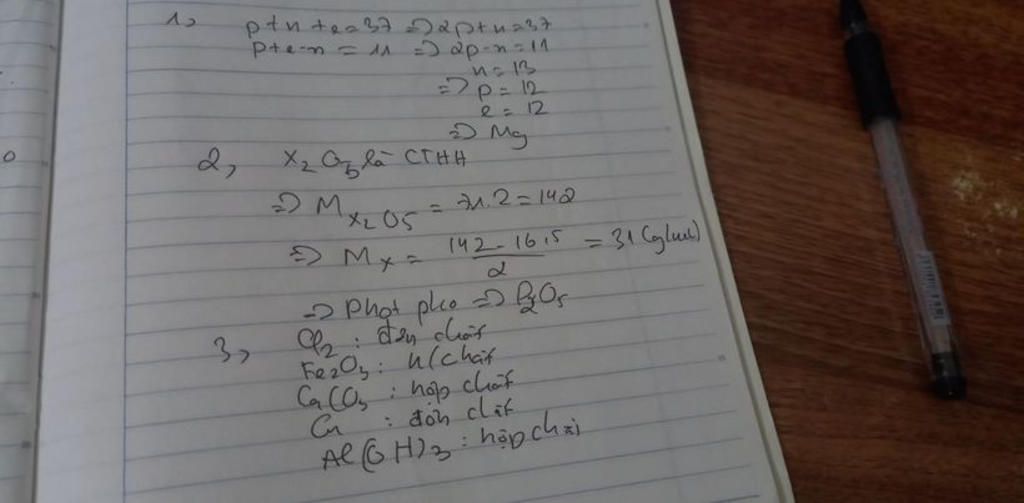 1, p+n+e=37 => 2p+n=37
p+e-n = 11 => 2p-n=11
n = 13
=> p = 12
e = 12
=> Mg
2, X₂O₅ là CTHH
=> M X₂O₅ = 71.2 = 142
=> Mx = (142-16.5)/2 = 31 (g/mol)
=> Phot pho => P₂O₅
3, Cl₂ : đơn chất
Fe₂O₃ : h/chất
CaCO₃ : hợp chất
: đơn chất
Al(OH)₃ : hợp chất